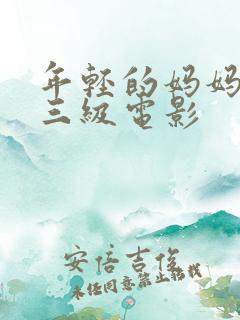 年轻的妈妈
三级电影
安倍吉俊
未经同意禁止转载